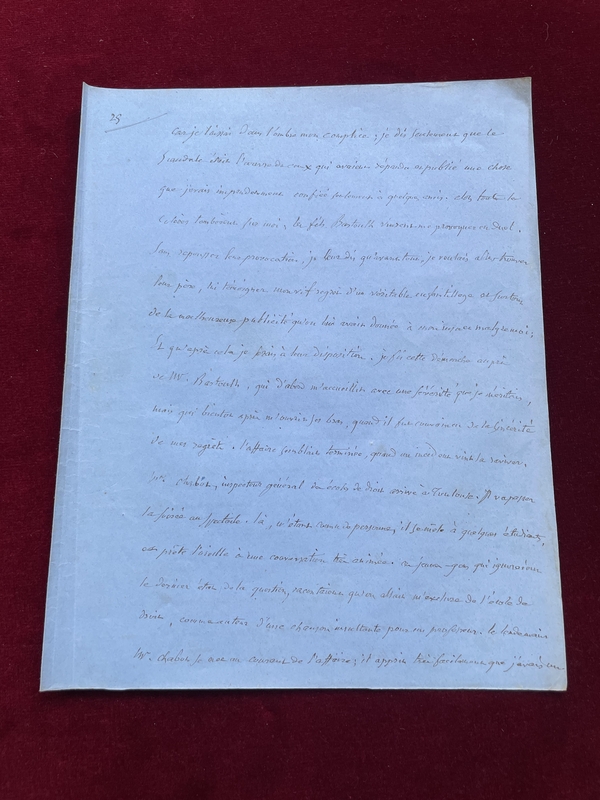 25
Car je laissai dans l'ombre mon complice; je dis seulement que le
scandale était l'œuvre de ceux qui avaient répandu et publié une chose
que j'avais imprudemment confiée seulement à quelques amis. dès lors toute la
colère tombèrent sur moi, les fils Bastoulh vinrent me provoquer en duel.
Sans repousser leur provocation, je leur dis qu'avant tout, je voulais aller trouver
leur père, lui témoigner mon vif regret d'un véritable enfantillage et surtout
de la malheureuse publicité qu'on lui avait donnée à mon insu et malgré moi;
Et qu'après cela je serais à leur disposition. je fis cette démarche auprès
de Mr. Bastoulh, qui d'abord m'accueillit avec une sévérité que je méritais,
mais qui bientôt après m'ouvrit ses bras, quand il fut convaincu de la sincérité
de mes regrets. l'affaire semblait terminée, quand un incident vint la raviver.
Mr. Chabot, inspecteur général des écoles de droit arrive à Toulouse. Il va passer
la soirée au spectacle. là, n'étant connu de personne, il se mêle à quelques étudiants,
et prête l'oreille à une conversation très animée. ces jeunes gens qui ignoraient
le dernier état de la question, racontaient qu'on allait m'exclure de l'école de
droit, comme auteur d'une chanson insultante pour un professeur. le lendemain
Mr. Chabot se met au courant de l'affaire; il apprit très facilement que j'avais un